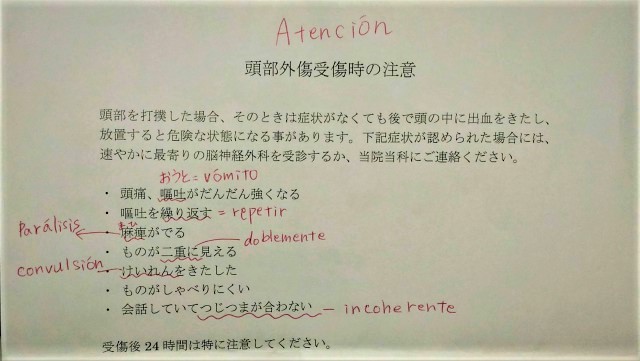 Atención
頭部外傷受傷時の注意
頭部を打撲した場合、そのときは症状がなくても後で頭の中に出血をきたし、
放置すると危険な状態になる事があります。下記症状が認められた場合には、
速やかに最寄りの脳神経外科を受診するか、当院当科にご連絡ください。
おうと=vómito
・ 頭痛、嘔吐がだんだん強くなる
・ 嘔吐を繰り返す = repetir
Parálisis まひ
・ 麻痺がでる
doblemente
・ ものが二重に見える
convulsión
・ けいれんをきたした
・ ものがしゃべりにくい
・ 会話していてつじつまが合わない - incoherente
受傷後 24 時間は特に注意してください。